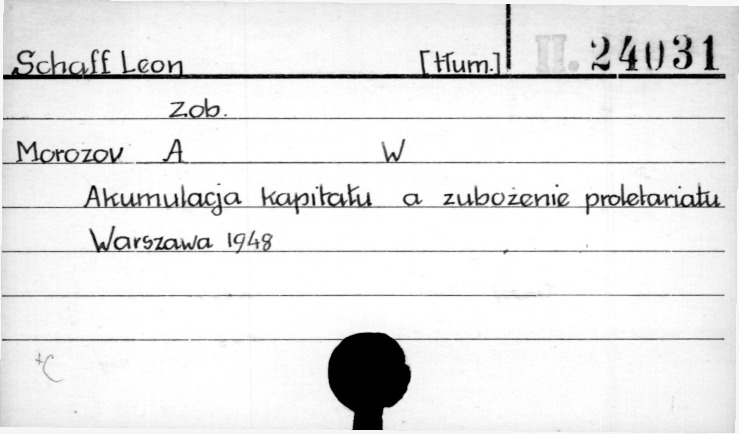 Schaff Leon [tłum.] II. 24031
Zob.
Morozov A W
Akumulacja kapitału a zubożenie proletariatu
Warszawa 1948
+C